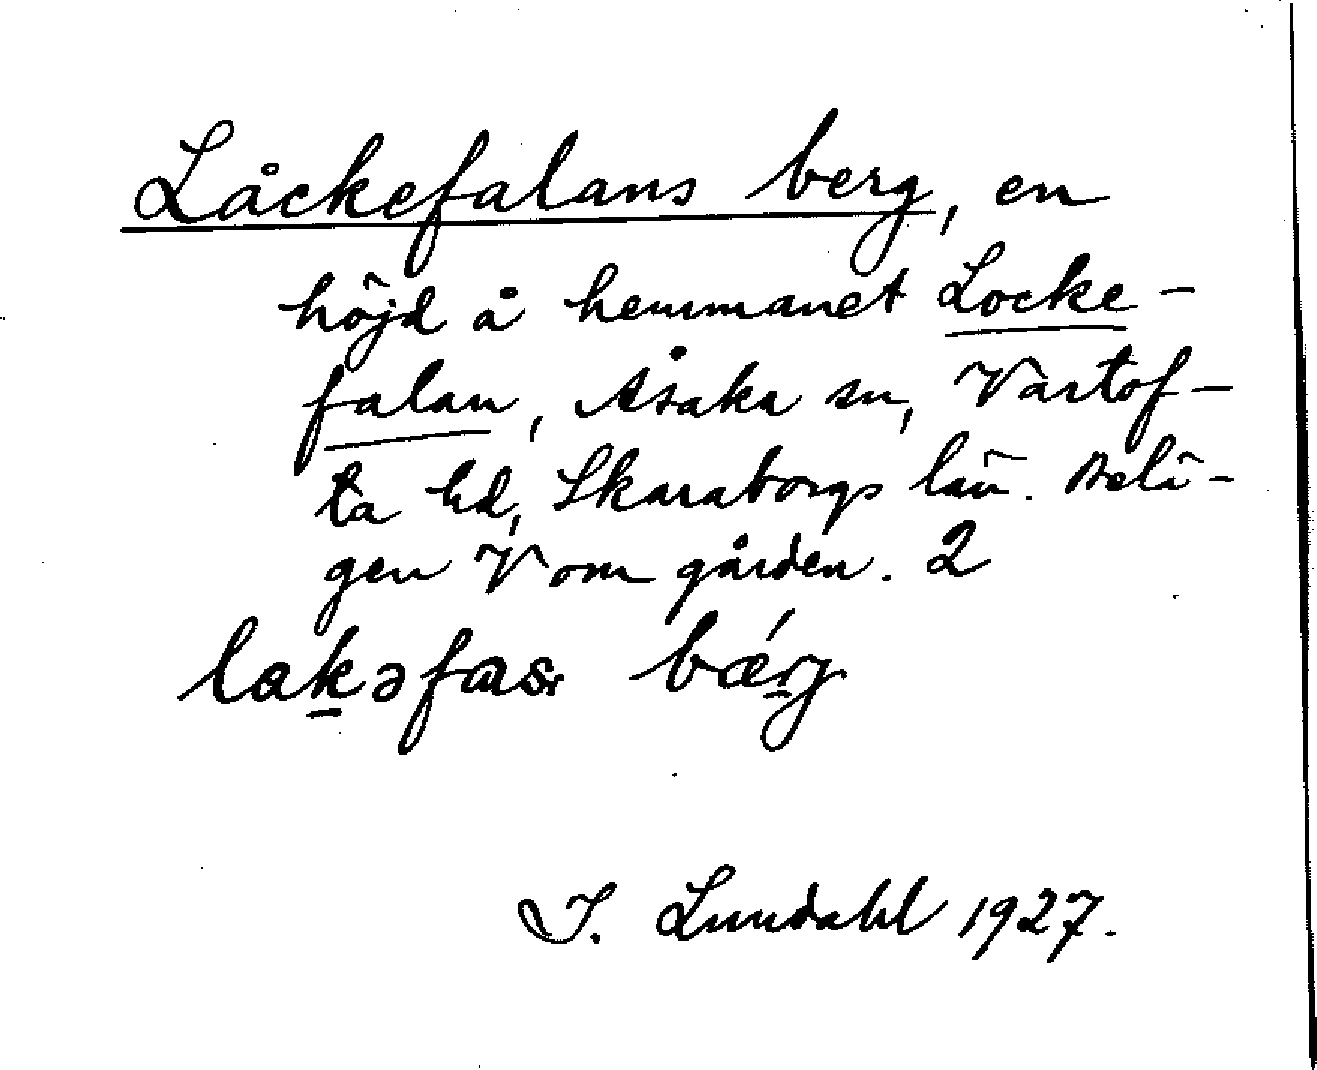 Låckefalans berg, en
höjd å hemmanet Locke-
falan, Åsaka sn, Vartof-
ta hd, Skaraborgs län. Belä-
gen V om gården. 2
bærg
I. Lundahl 1927.